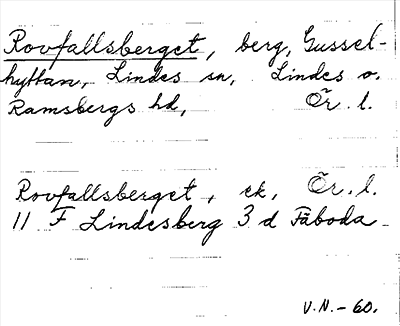 Rovfallsberget, berg, Gussel-
hyttan, Lindes sn, Lindes o.
Ramsbergs hd, Ör. l.
Rovfallsberget, ek, Ör. l.
11 F Lindesberg 3 d Fäboda
V.N.-60.